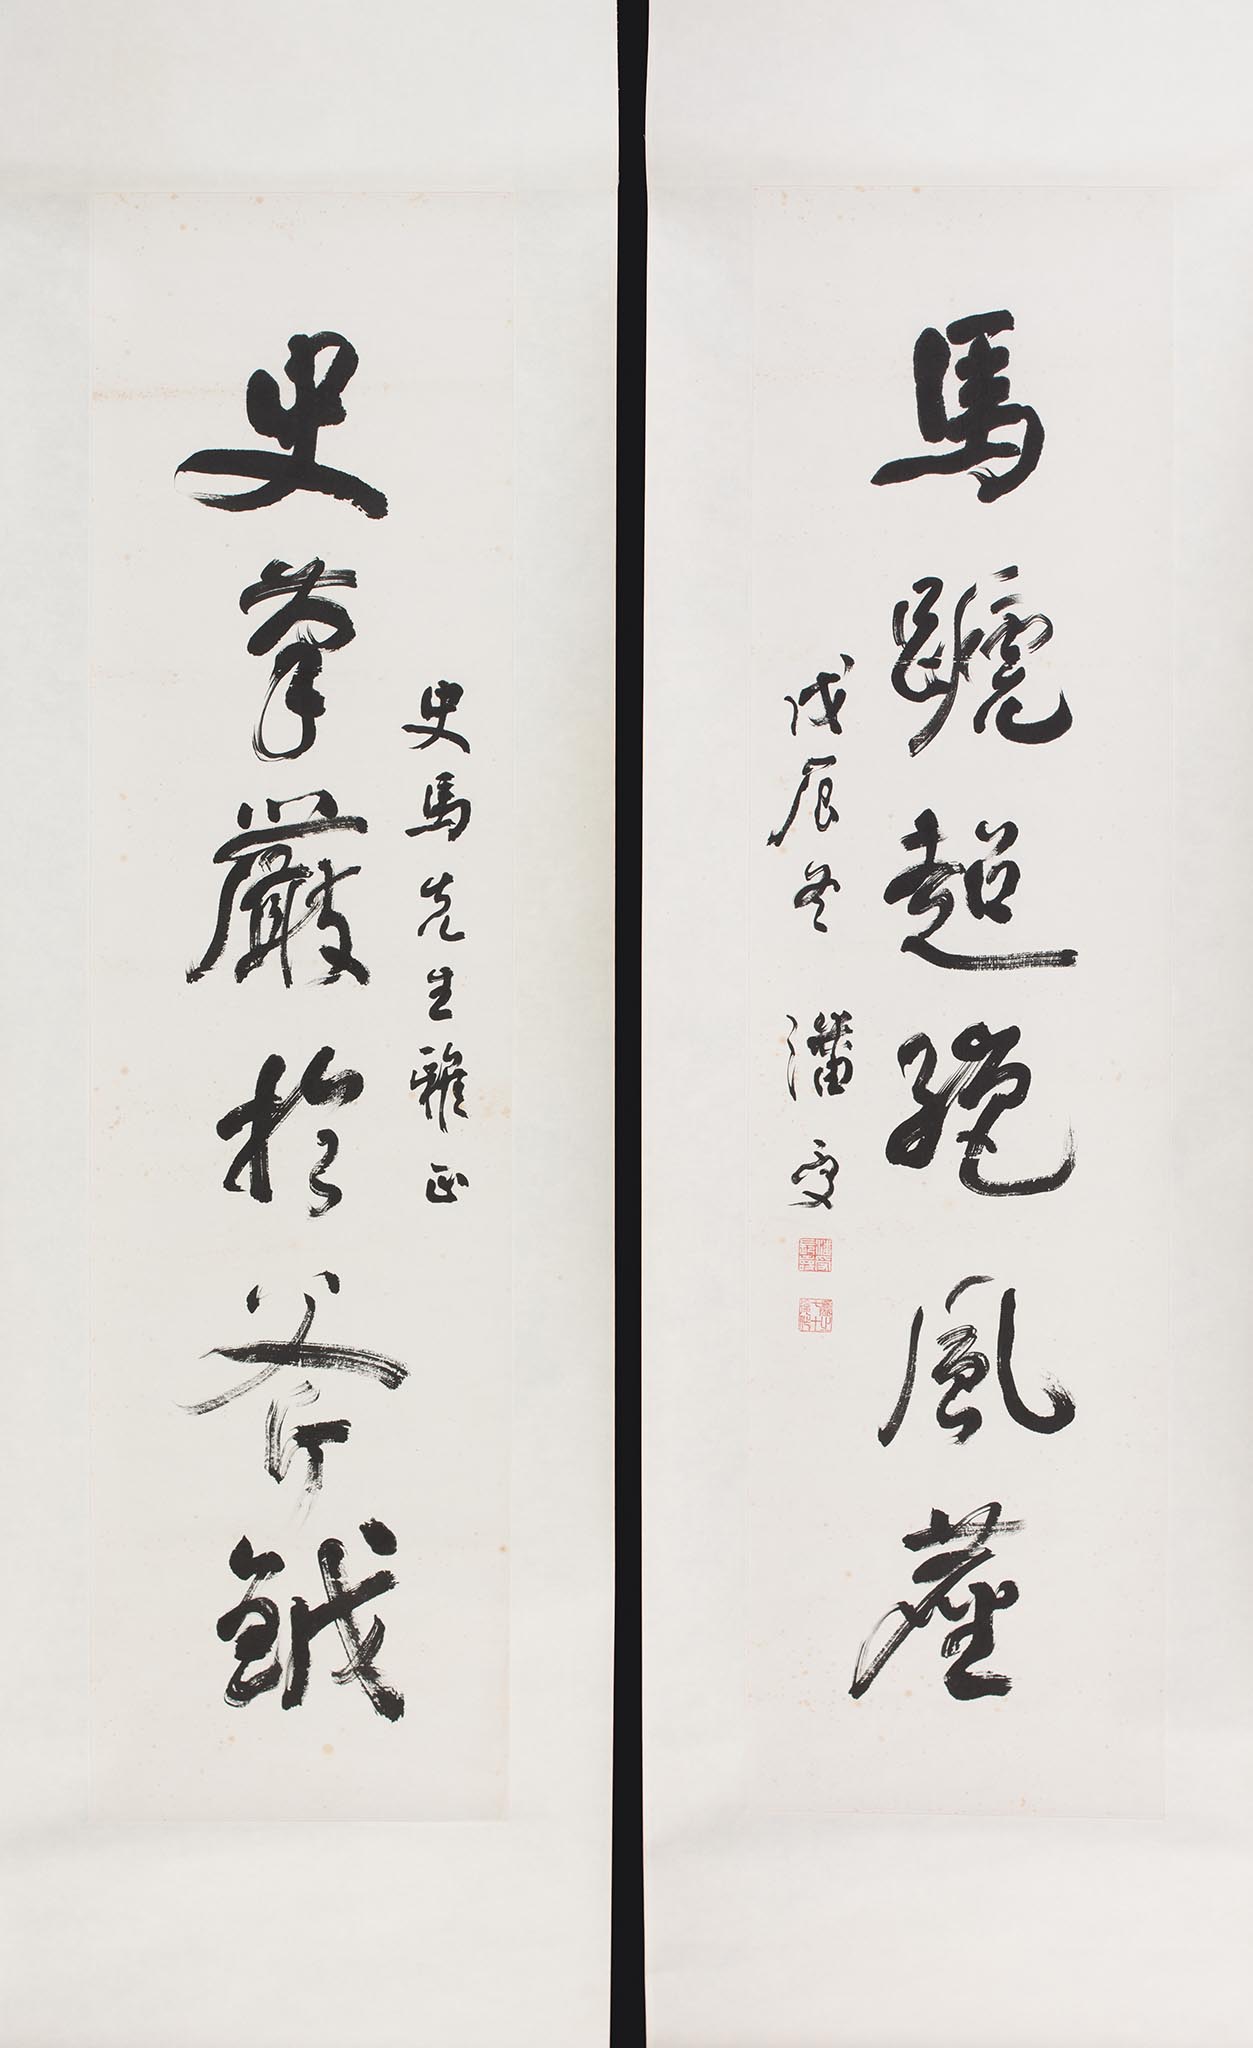 史馬先生雅正
史筆嚴於斧鉞
馬蹏超絕風塵
戊辰冬 潘受